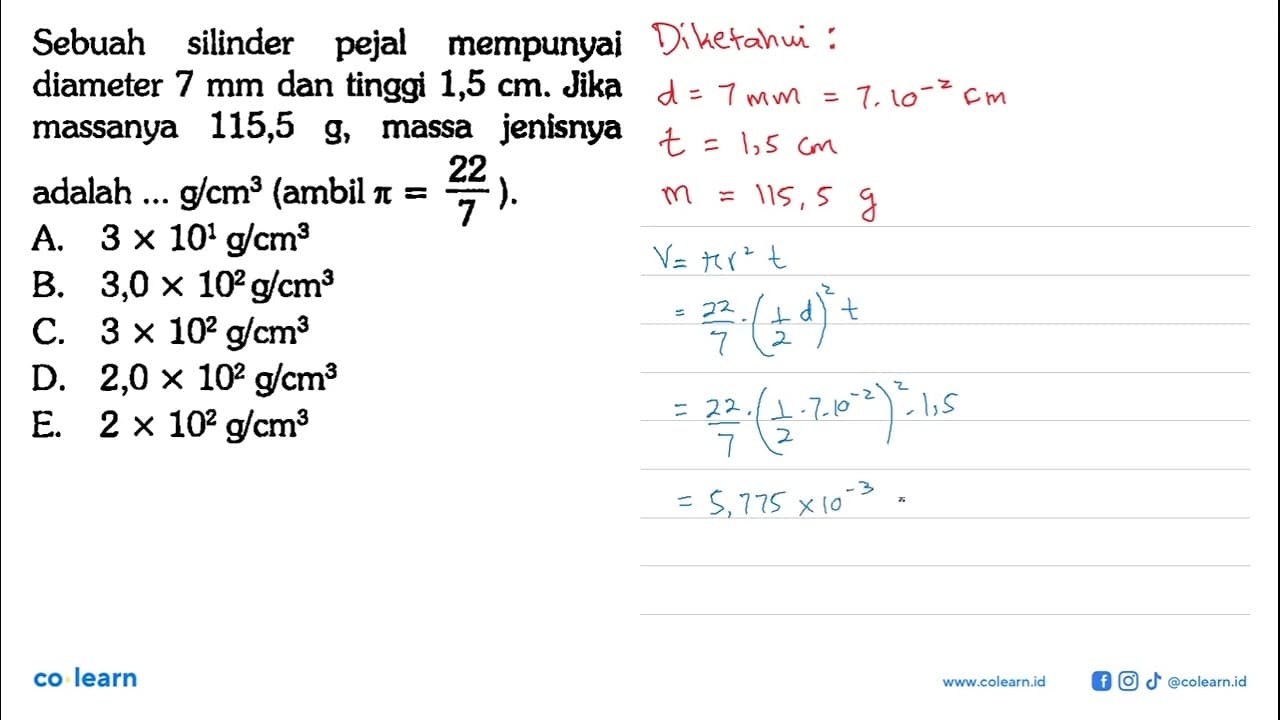 Sebuah silinder pejal mempunyai
diameter 7 mm dan tinggi 1,5 cm. Jika
massanya 115,5 g, massa jenisnya
adalah ... g/cm³ (ambil π = 22/7).
A. 3 × 10¹ g/cm³
B. 3,0 × 10² g/cm³
C. 3 × 10² g/cm³
D. 2,0 × 10² g/cm³
E. 2 × 10² g/cm³
Diketahui :
d = 7 mm = 7.10⁻² cm
t = 1,5 cm
m = 115,5 g
V = πr² t
= 22/7 . (1/2 d)² t
= 22/7 . (1/2 . 7.10⁻²)² . 1,5
= 5,775 × 10⁻³
co learn
www.colearn.id
@colearn.id